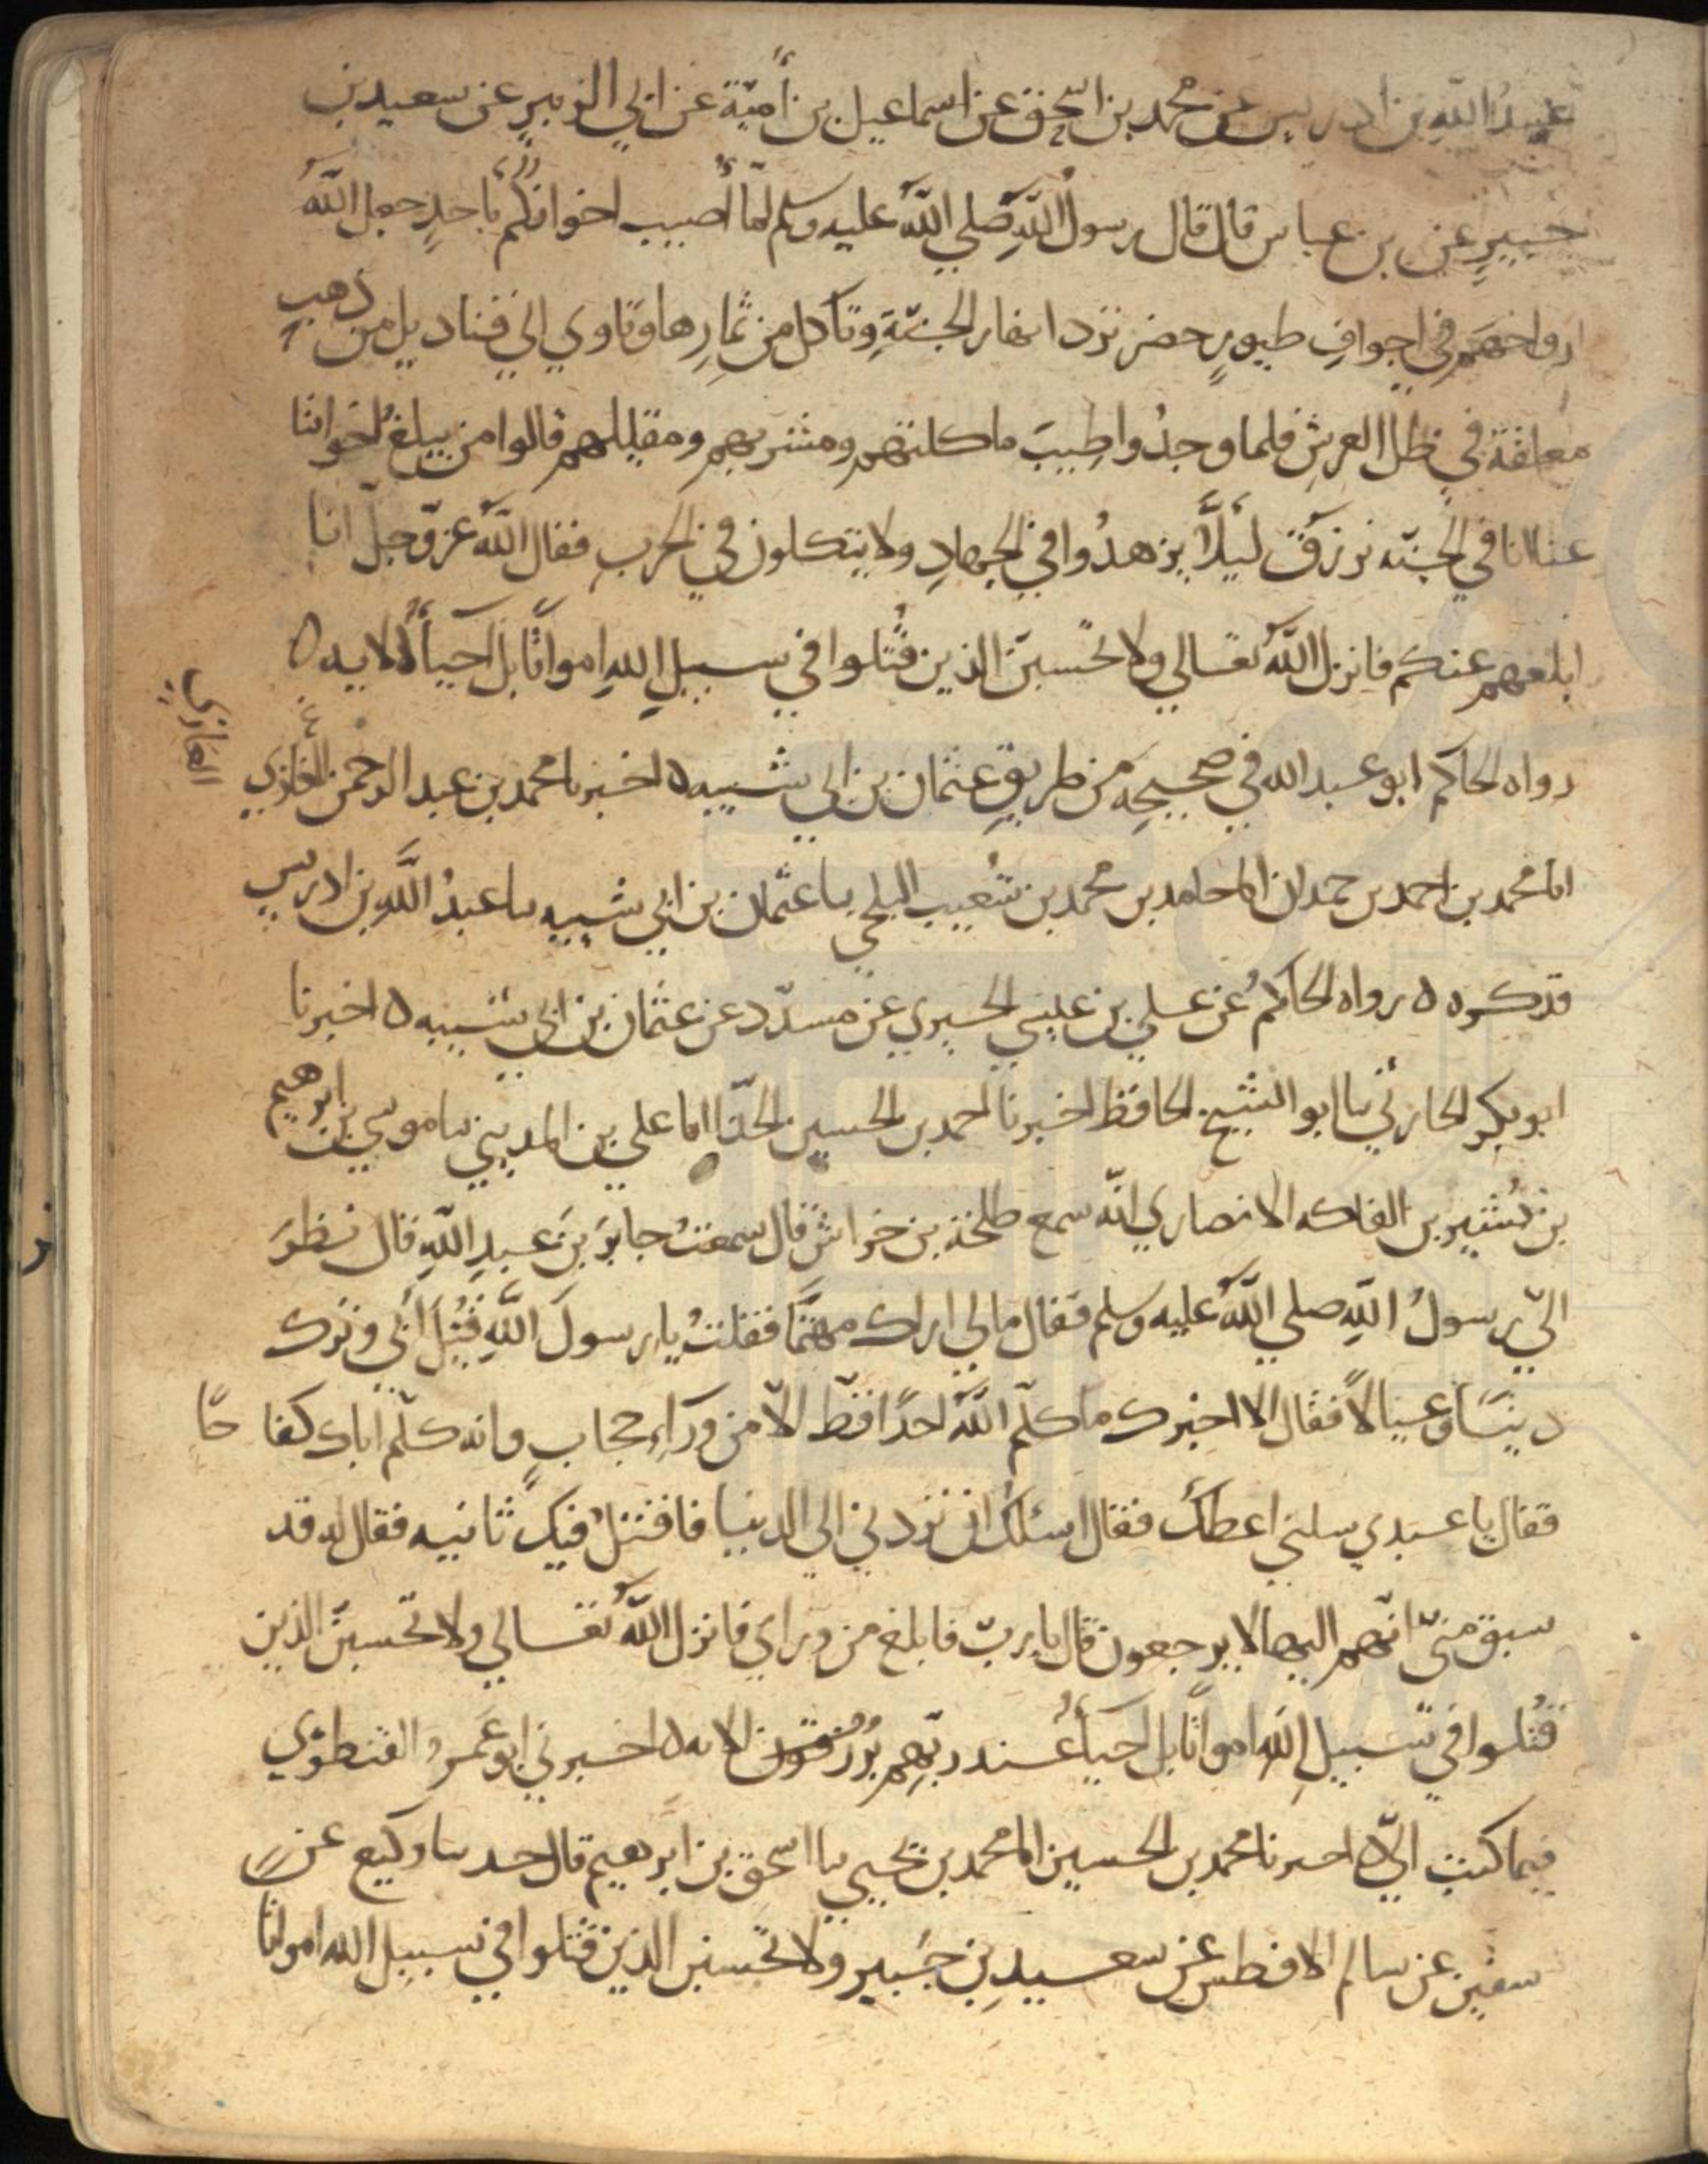 عبدُ اللهِ بن ادريس عن محمد بن اسحق عن اسماعيل بن أميّة عن ابي الزبيرِ عن سعيد بن
جبيرٍ عن بن عباس قال قال رسول اللهِ صلي اللهُ عليه وسلم لمّا أصيب اخوانكم باحدٍ جعل اللهُ
ارواحهم في اجوافِ طيورٍ خضر ترد انهار الجنّةِ وتاكل من ثمارِها وتاوي الي قناديل من ذهبٍ
معلقة في ظل العرشِ فلما وجدُوا طِيبَ ماكلهم ومشربهم ومقيلهم قالوا من يبلغُ اخواننا
عنا انا في الجنّه نرزق ليلاَّ يزهدُوا في الجهادِ ولا يتكلون في الحربِ فقال اللهُ عزّ وجلّ انا
ابلغهم عنكم فانزل اللهُ تعالي ولا تحسبنّ الذين قُتلوا في سبيلِ اللهِ امواتًا بل احياءٌ الايه ه
رواه الحاكم ابو عبد الله في صحيحِه من طريقِ عثمان بن ابي شيبه ه اخبرنا محمد بن عبد الرحمن الغازي
المغازي
انا محمد بن احمد بن حمدان انا حامد بن محمد بن شُعيب البلخي نا عثمان بن ابي شيبه نا عبدُ اللهِ بن ادريس
فذكره ه رواه الحاكمُ عن علي بن عيسي الحيري عن مسدّد عن عثمان بن ابي شيبه ه اخبرنا
ابو بكر الحارثي نا ابو الشيخ الحافظ اخبرنا احمد بن الحسين الحذّا انا علي بن المديني نا موسي بن ابرهيم
بن بُشير بن الفاكه الانصاري انّه سمع طلحة بن خراش قال سمعتُ جابرَ بنَ عبدِ اللهِ قال نظرَ
اليّ رسولُ اللهِ صلي اللهُ عليه وسلم فقال ما لي اراك مهتمًّا فقلتُ يا رسولَ اللهِ قُتِلَ ابي وترك
دينًا وعيالًا فقال الا اخبرك ما كلّم اللهُ احدًا قطّ الّا من وراءِ حجابٍ وانه كلّم اباك كفاحًا
فقال يا عبدي سلني اعطك فقال اسئلك ان تردني الي الدنيا فاقتلُ فيك ثانيه فقال له قد
سبق منّي انّهم اليها لا يرجعون قال يا ربّ فابلغ من وراي فانزل اللهُ تعالي ولا تحسبنّ الذين
قُتلوا في سبيلِ اللهِ امواتًا بل احياءٌ عند ربّهم يُرزقون الايه ه اخبرني ابو عَمرو القنطري
فيما كتبَ اليّ ه اخبرنا محمد بن الحسين انا محمد بن يحيي نا اسحق بن ابرهيم قال حدثنا وكيع عن
سفين عن سالم الافطس عن سعيدِ بن جُبير ولا تحسبن الذين قتلوا في سبيل الله امواتا